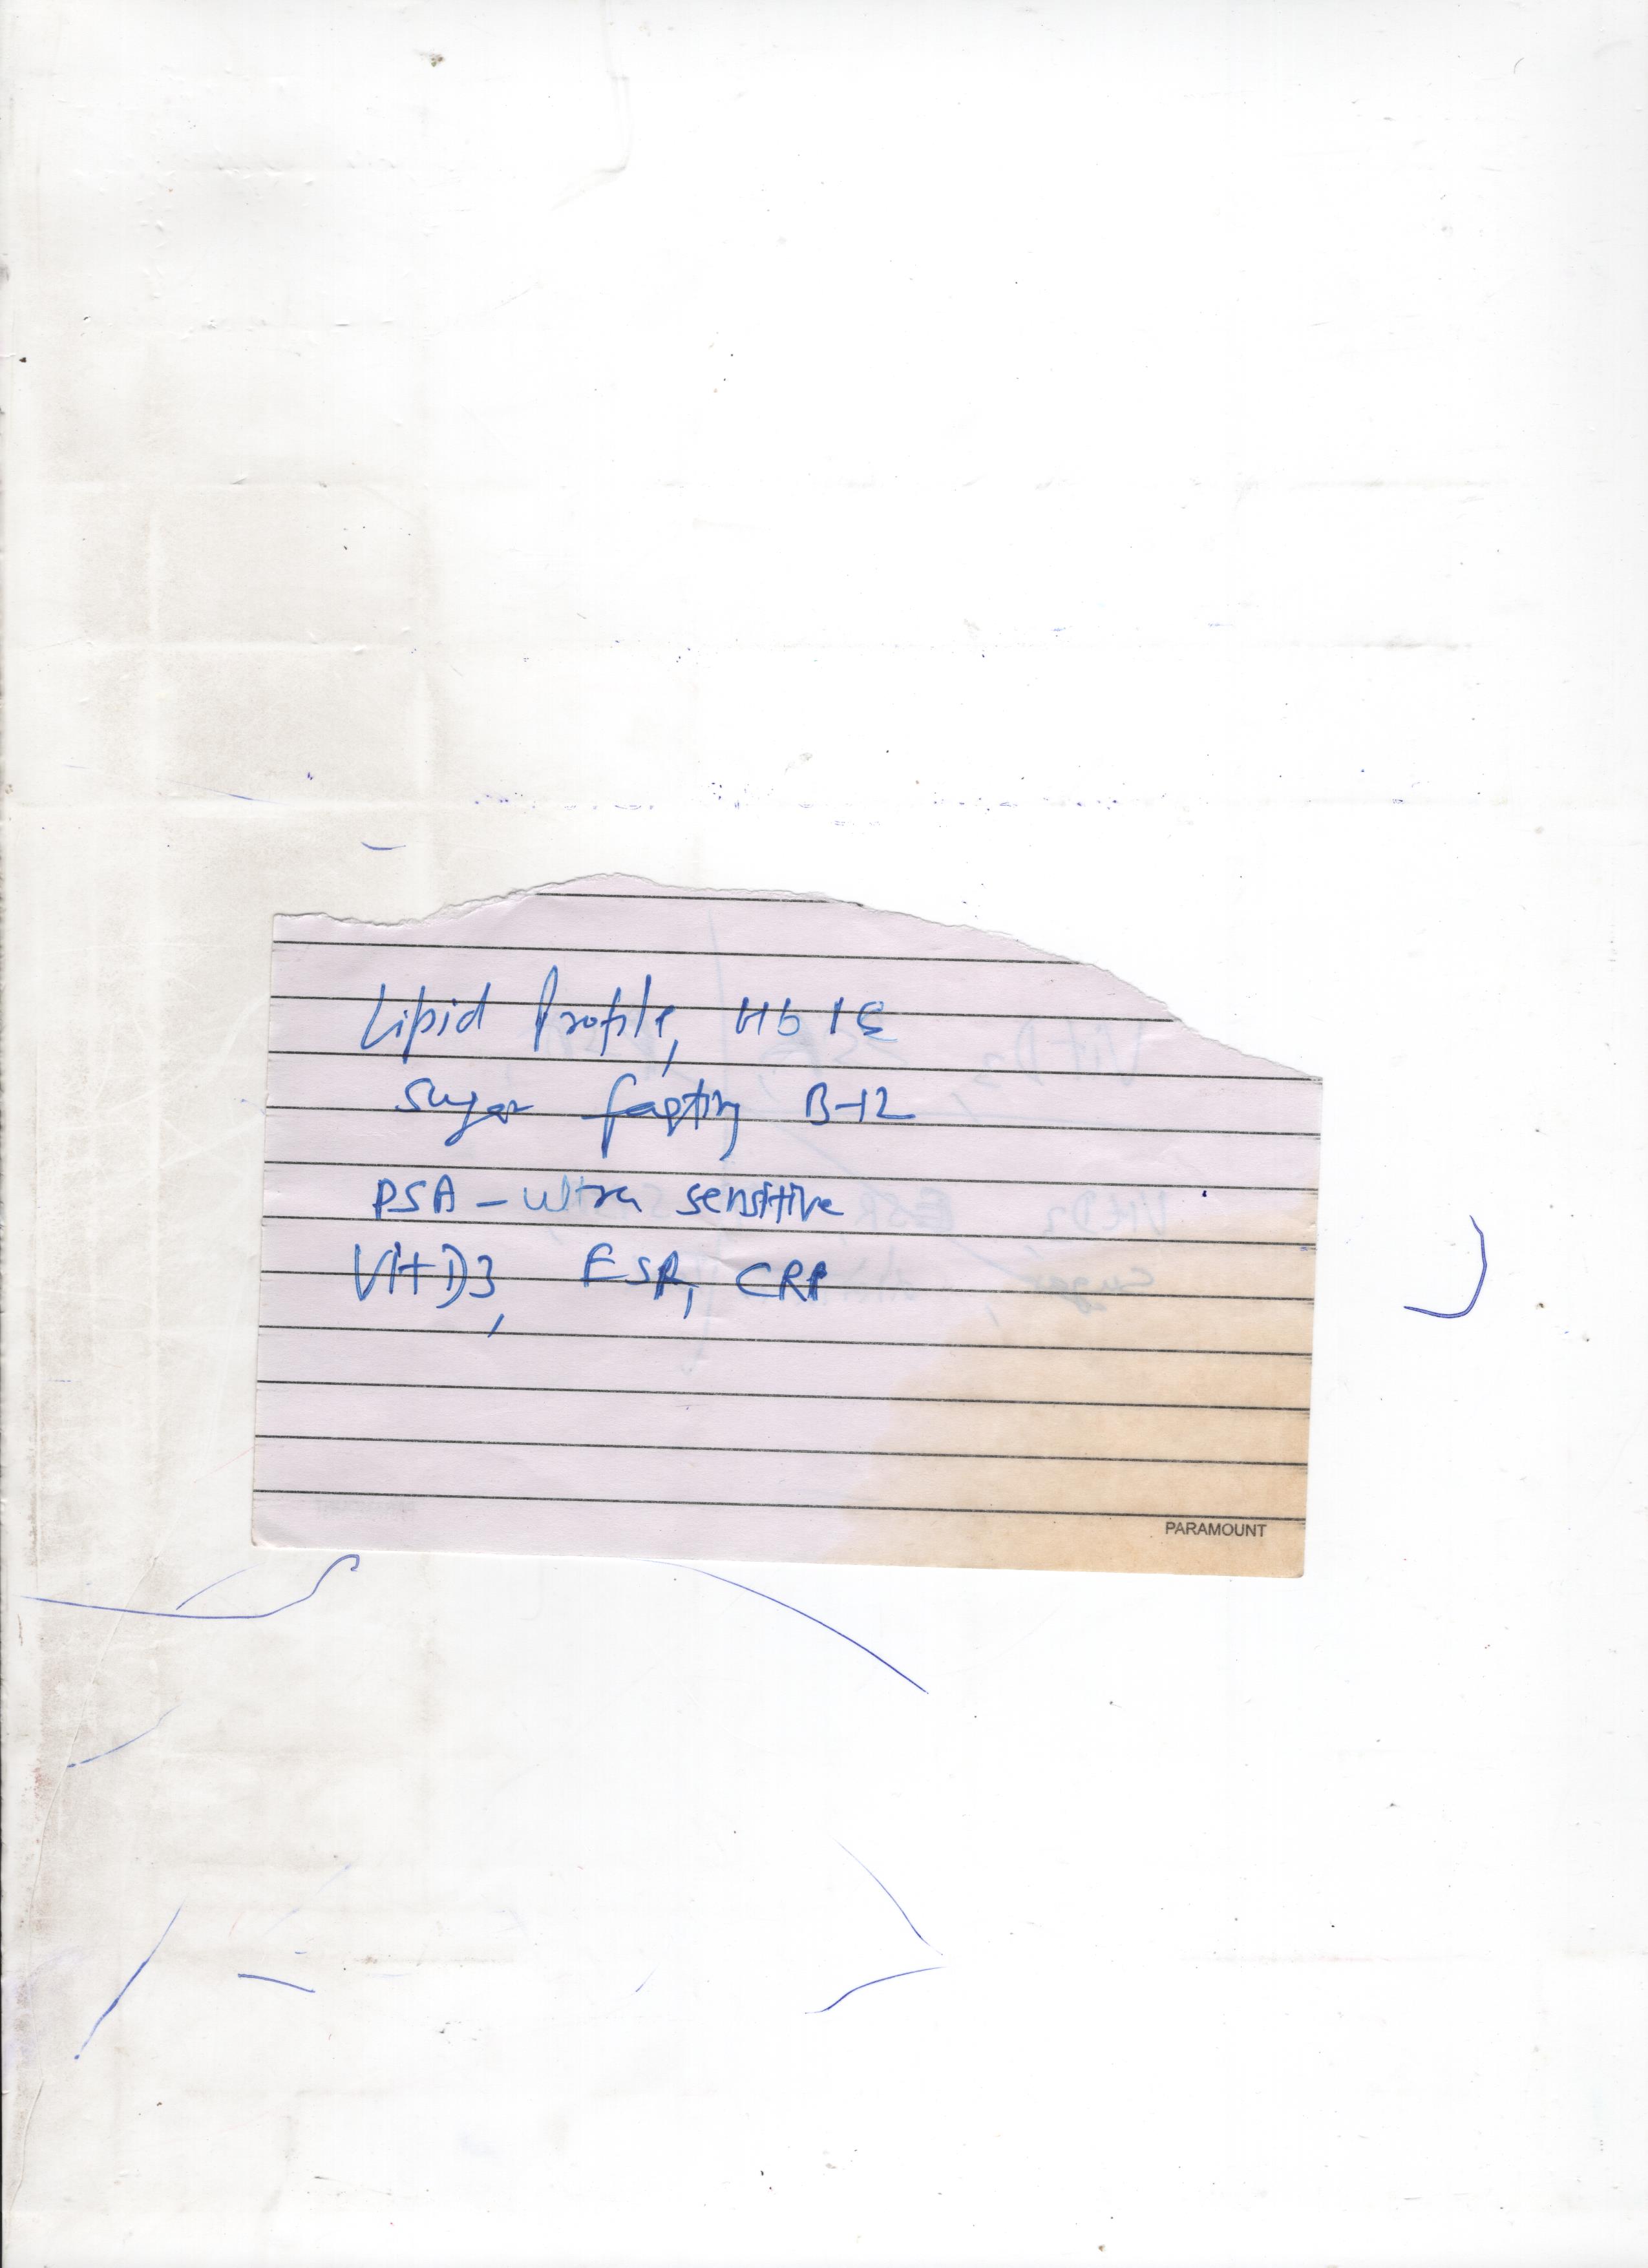 Lipid Profile, Hb 1C
Sugar fasting B-12
PSA - ultra sensitive
Vit D3, ESR, CRP
PARAMOUNT